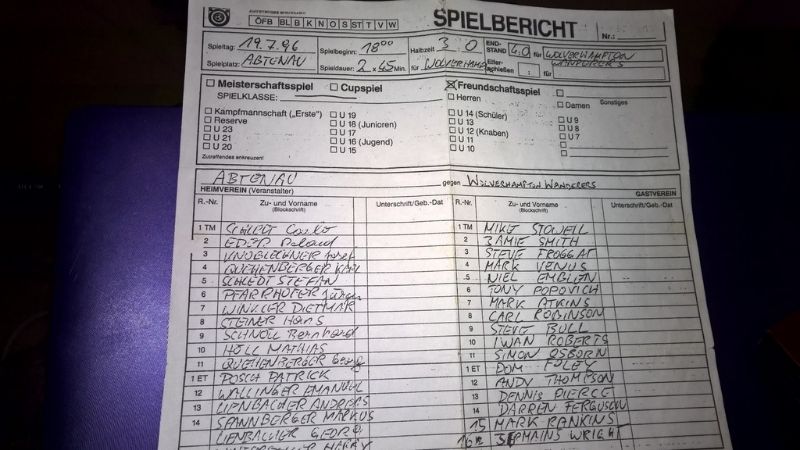 ÖFB BL B K N O S ST T V W
SPIELBERICHT
Nr.:
Spieltag: 19.7.96 Spielbeginn: 18⁰⁰ Halbzeit 3 0 END-STAND 4:0 für WOLVERHAMPTON WANDERERS
Spielplatz: ABTENAU Spieldauer: 2 x 45 Min. für WOLVERHAM Elfer-schießen : für
Meisterschaftsspiel Cupspiel Freundschaftsspiel
SPIELKLASSE: Herren Damen Sonstiges
Kampfmannschaft („Erste") U 19 U 14 (Schüler) U 9
Reserve U 18 (Junioren) U 13 U 8
U 23 U 17 U 12 (Knaben) U 7
U 21 U 16 (Jugend) U 11
U 20 U 15 U 10
Zutreffendes ankreuzen!
ABTENAU gegen WOLVERHAMPTON WANDERERS
HEIMVEREIN (Veranstalter) GASTVEREIN
R.-Nr. Zu- und Vorname (Blockschrift) Unterschrift/Geb.-Dat R.-Nr. Zu- und Vorname (Blockschrift) Unterschrift/Geb.-Dat
1 TM 1 TM MIKE STOWELL
2 EDER Roland 2 JAMIE SMITH
3 Josef 3 STEVE FROGGAT
4 QUEHENBERGER Karl 4 MARK VENUS
5 SCHLEDT STEFAN 5 NIEL EMBLEN
6 PFARRHOFER Jürgen 6 TONY POPOVICH
7 WINKLER DIETMAR 7 MARK ATKINS
8 STEINER Hans 8 CARL ROBINSON
9 SCHNÖLL Bernhard 9 STEVE BULL
10 HÖLL MATHIAS 10 IWAN ROBERTS
11 QUEHENBERGER Georg 11 SIMON OSBORN
1 ET POSCH PATRICK 1 ET DOM FOLEY
12 WALLINGER EMANUEL 12 ANDY THOMPSON
13 LIENBACHER ANDREAS 13 DENNIS PIERCE
14 SPANNBERGER MARKUS 14 DARREN FERGUSON
LIENBACHER GEORG 15 MARK RANKINS
HARRY 16 JERMAINS WRIGHT